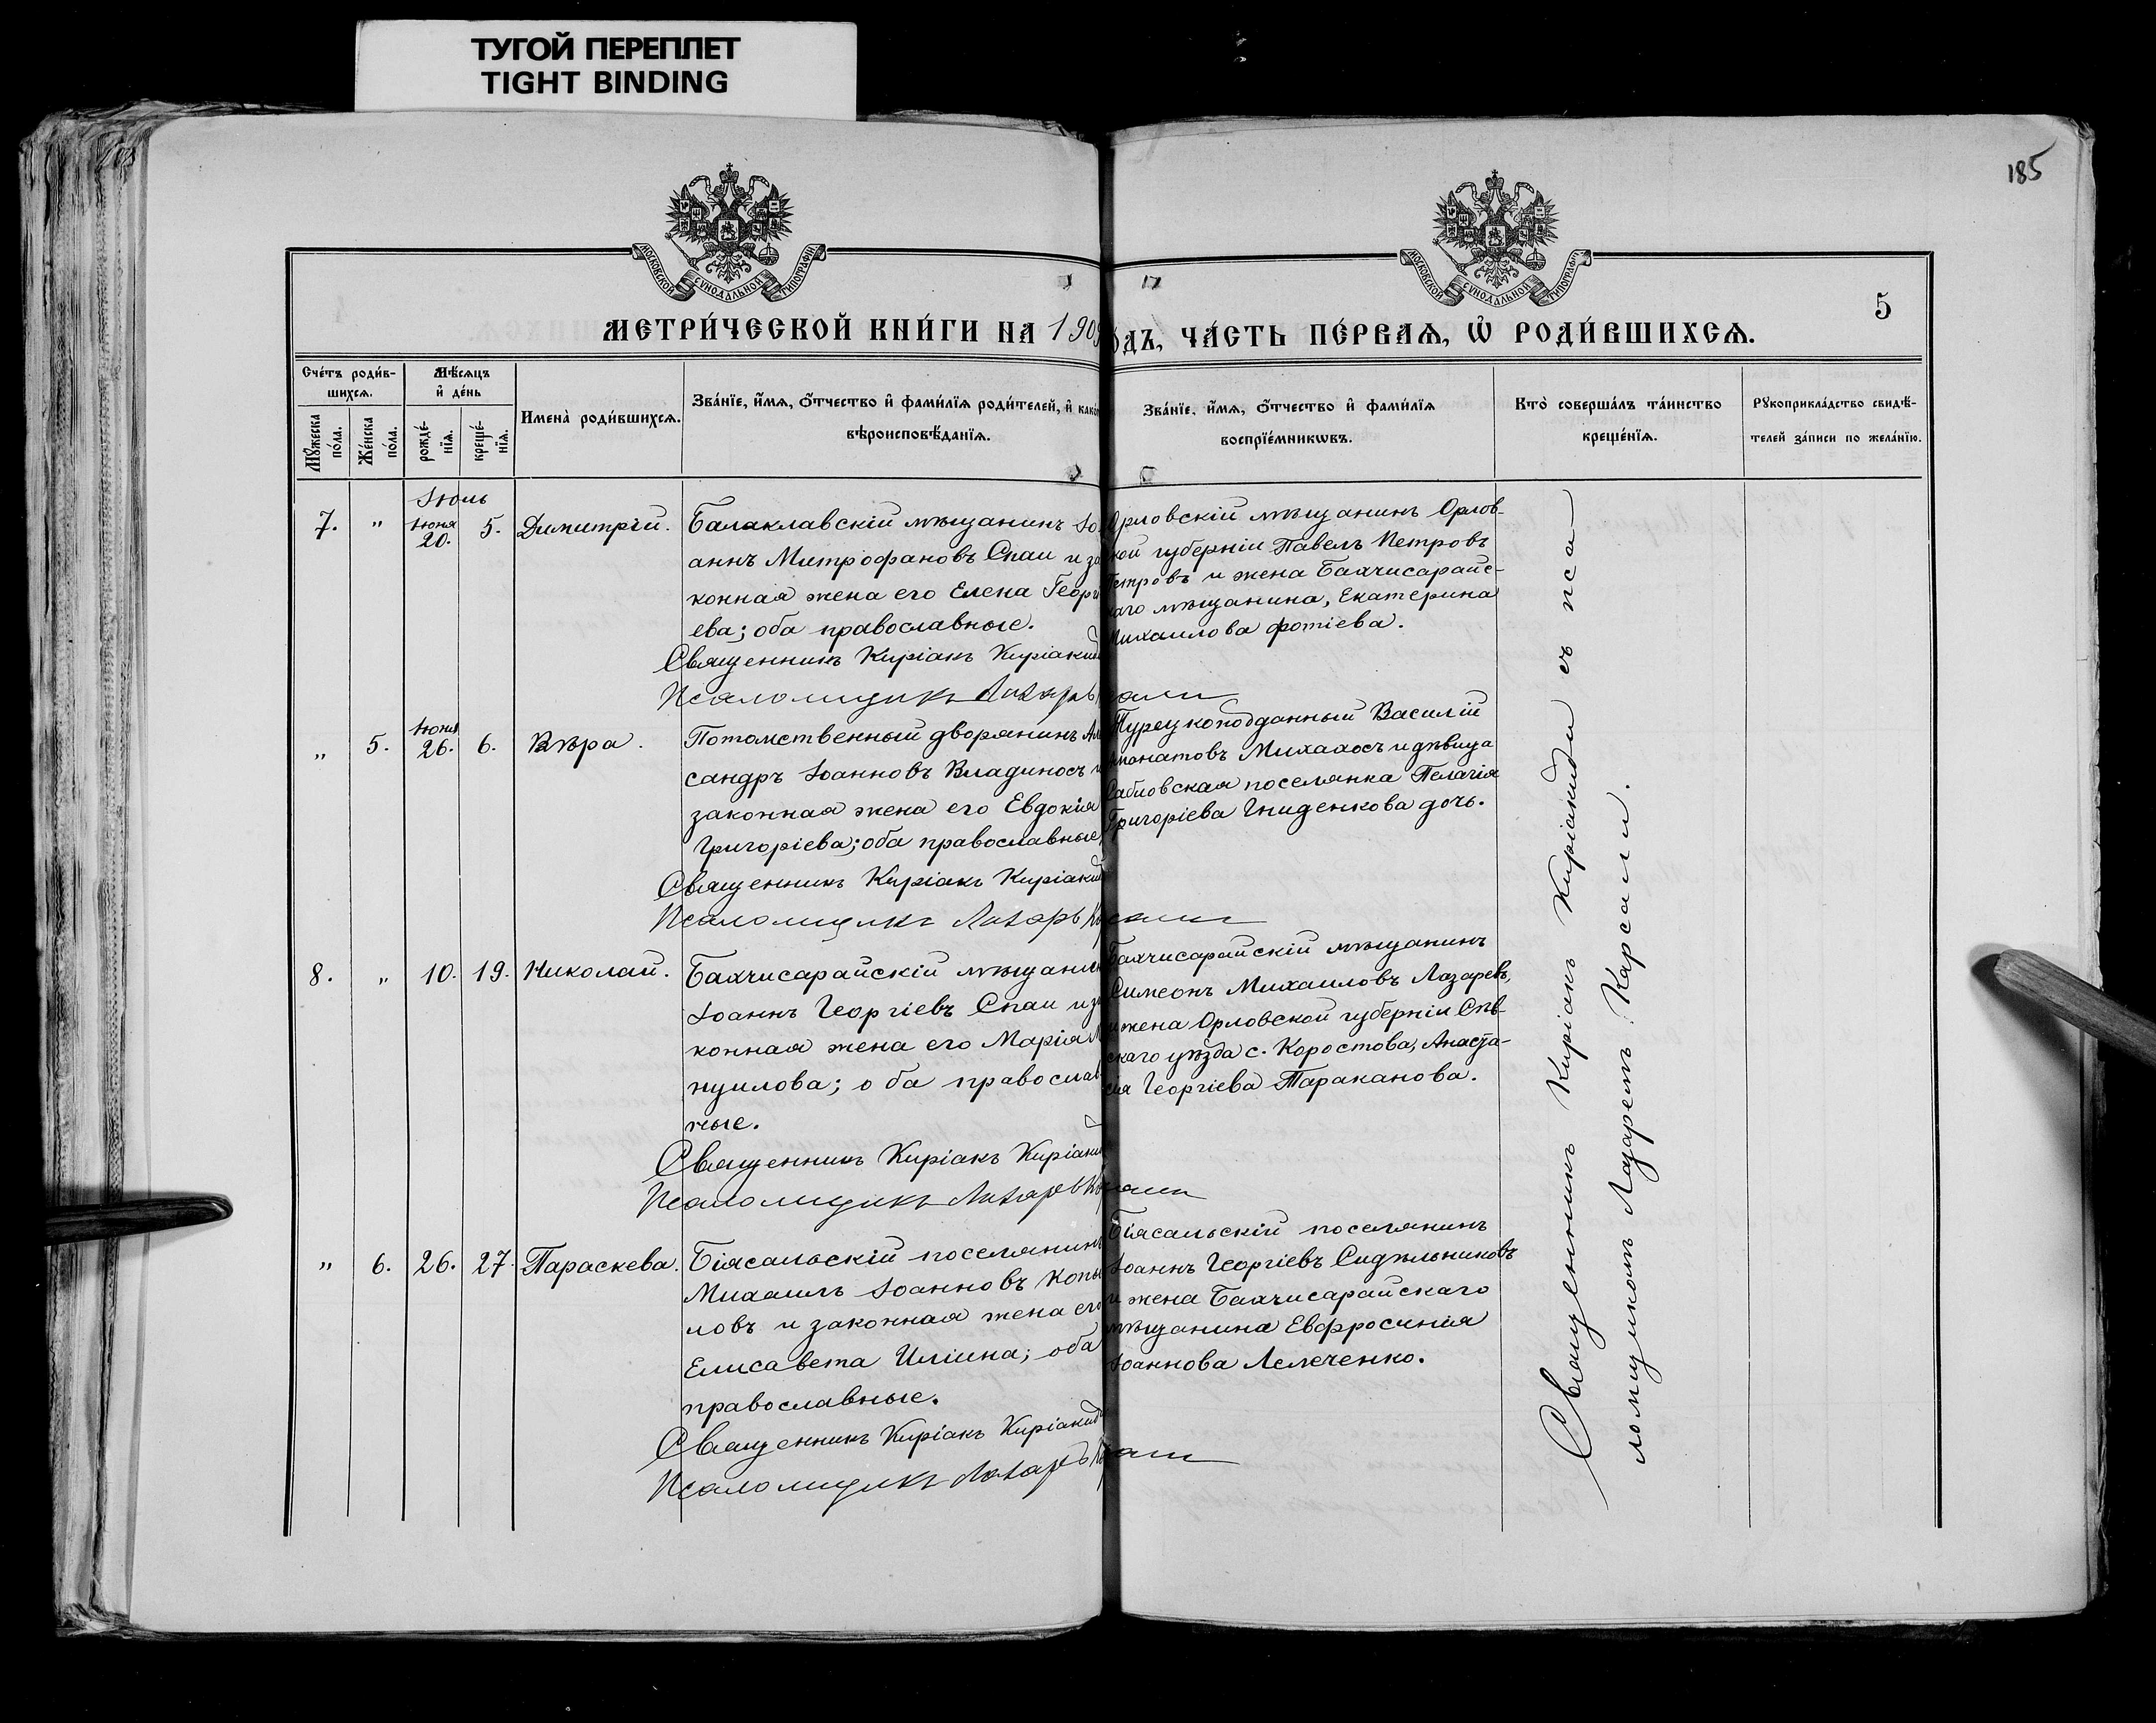 ТУГОЙ ПЕРЕПЛЕТ
TIGHT BINDING
185
МОСКОВСКОЙ СѴНОДАЛЬНОЙ ТИПОГРАФІИ
МОСКОВСКОЙ СѴНОДАЛЬНОЙ ТИПОГРАФІИ
5
МЕТРИ́ЧЕСКОЙ КНИ́ГИ НА 1909
ОДЪ, ЧА́СТЬ ПЕ́РВАѦ, Ѡ РОДИ́ВШИХСѦ.
Сче́тъ роди́в-
шихсѧ.
Мꙋ́жеска
по́ла.
Же́нска
по́ла.
Мѣ́сѧцъ
и҆ де́нь
рожде́-
нїѧ.
креще́-
нїѧ.
Имена̀ роди́вшихсѧ.
Зва́нїе, и҆́мѧ, ѻ҆́тчество и҆ фами́лїѧ роди́телей, и҆ како
вѣроисповѣ́данїѧ.
Зва́нїе, и҆́мѧ, ѻ҆́тчество и҆ фами́лїѧ
воспрїе́мникѡвъ.
Кто̀ соверша́лъ та́инство
креще́нїѧ.
Рꙋкоприкла́дство свидѣ́-
телей за́писи по жела́нїю.
Іюль
7. " Іюня 20. 5. Димитрій.
Балаклавскій мѣщанинъ Іо-
аннъ Митрофановъ Спаи и за
конная жена его Елена Георгі
ева; оба православные.
Священникъ Киріакъ Киріакиди
Псаломщикъ Лазарь
Орловскій мѣщанинъ Орлов-
кой губерніи Павелъ Петровъ
Петровъ и жена Бахчисарайс-
каго мѣщанина, Екатерина
Михаилова Фотіева.
" 5. Іюня 26. 6. Вѣра.
Потомственный дворянинъ Ал
сандръ Іоанновъ Владиносъ и
законная жена его Евдокія
Григоріева; оба православные,
Священникъ Киріакъ Киріакиди
Псаломщикъ Лазарь
Турецкоподданный Василій
Михаахосъ и дѣвица
Сабловская поселянка Пелагія
Григоріева Гниденкова дочь.
8. " 10. 19. Николай.
Бахчисарайскій мѣщанин
Іоаннъ Георгіевъ Спаи и за
конная жена его Марія М
нуилова; оба православ
ные.
Священникъ Киріакъ Киріакиди
Псаломщикъ Лазарь
Бахчисарайскій мѣщанинъ
Симеонъ Михаиловъ Лазаревъ,
и жена Орловской губерніи Сѣв-
скаго уѣзда с. Коростова, Анаста-
сія Георгіева Тараканова.
" 6. 26. 27. Параскева.
Біясальскій поселянинъ
Михаилъ Іоанновъ Копы
ловъ и законная жена его
Елисавета Иліина; оба
православные.
Священникъ Киріакъ Киріакиди
Псаломщикъ Лазарь
Біясальскій поселянинъ
Іоаннъ Георгіевъ Сидѣльниковъ
и жена Бахчисарайскаго
мѣщанина Евфросинія
Іоаннова Лелеченко.
Священникъ Киріакъ Киріакиди съ пса-
ломщикомъ Лазаремъ Карсали.